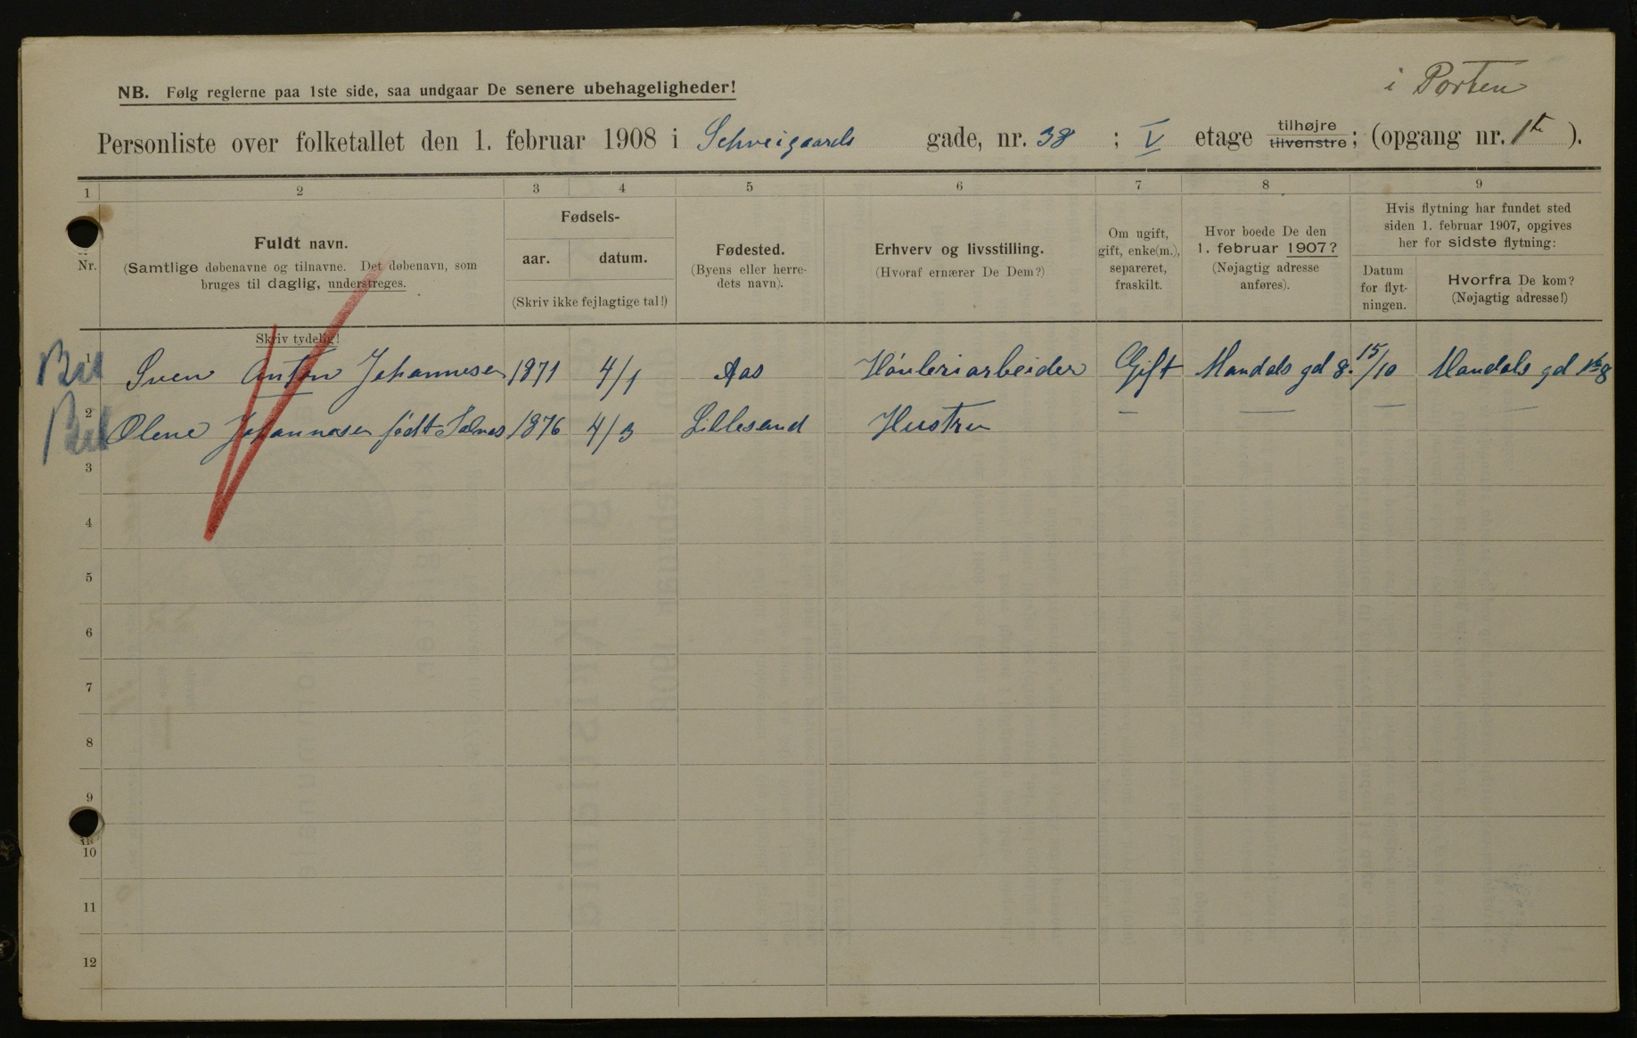 i Porten
NB. Følg reglerne paa 1ste side, saa undgaar De senere ubehageligheder!
Personliste over folketallet den 1. februar 1908 i Schveigaards gade, nr. 38 ; V etage tilhøjre tilvenstre; (opgang nr. 1te ).
1 2 3 4 5 6 7 8 9
Nr.
Fuldt navn.
(Samtlige døbenavne og tilnavne. Det døbenavn, som
bruges til daglig, understreges.
Skriv tydelig!
Fødsels-
aar. datum.
(Skriv ikke fejlagtige tal!)
Fødested.
(Byens eller herre-
dets navn).
Erhverv og livsstilling.
(Hvoraf ernærer De Dem?)
Om ugift,
gift, enke(m.),
separeret,
fraskilt.
Hvor boede De den
1. februar 1907?
(Nøjagtig adresse
anføres).
Hvis flytning har fundet sted
siden 1. februar 1907, opgives
her for sidste flytning:
Datum
for flyt-
ningen.
Hvorfra De kom?
(Nøjagtig adresse!)
1 Sven Anton Johannesen 1871 4/1 Aas Gift Mandals gd 8. 15/10 Mandals gd 8
2 Olene Johannesen født 1876 4/3 Lillesand Hustru — — — —
3
4
5
6
7
8
9
10
11
12